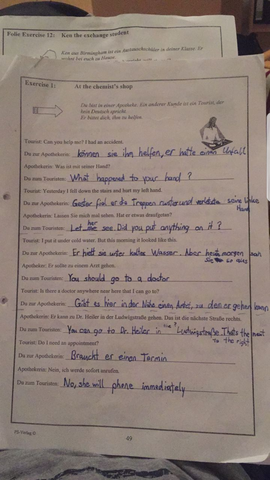 Folie Exercise 12: Ken the exchange student
Exercise 1: At the chemist's shop
Du bist in einer Apotheke. Ein anderer Kunde ist ein Tourist, der
kein Deutsch spricht.
Er bittet dich, ihm zu helfen.
Tourist: Can you help me? I had an accident.
Du zur Apothekerin: können sie ihn helfen, er hatte einen Unfall
Apothekerin: Was ist mit seiner Hand?
Du zum Touristen: What happened to your hand?
Tourist: Yesterday I fell down the stairs and hurt my left hand.
Du zur Apothekerin: Gester fiel er die Treppen runter und verletzte seine linke
Hand
Apothekerin: Lassen Sie mich mal sehen. Hat er etwas draufgetan?
Du zum Touristen: Let her see. Did you put anything on it?
Tourist: I put it under cold water. But this morning it looked like this.
Du zur Apothekerin: Er hielt sie unter kaltes Wasser. Aber heute morgen sah
sie so aus
Apotheke: Er sollte zu einem Arzt gehen.
Du zum Touristen: You should go to a doctor
Tourist: Is there a doctor anywhere near here that I can go to?
Du zur Apothekerin: Gibt es hier in der Nähe einen Arzt, zu den er gehen kann
Apothekerin: Er kann zu Dr. Heiler in der Ludwigstraße gehen. Das ist die nächste Straße rechts.
Du zum Touristen: You can go to Dr. Heiler in the Ludwigstraße. That's the next
to the right
Tourist: Do I need an appointment?
Du zur Apothekerin: Braucht er einen Termin
Apothekerin: Nein, ich werde sofort anrufen.
Du zum Touristen: No, she will phone immediately
49